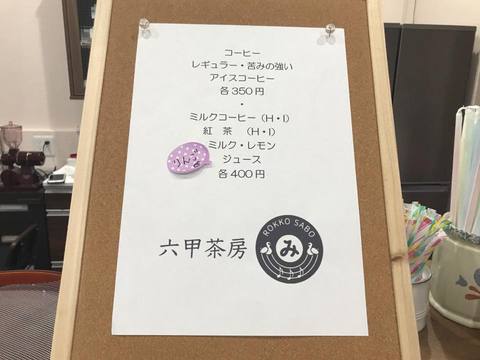 コーヒー
レギュラー・苦みの強い
アイスコーヒー
各350円
・
ミルクコーヒー(H・I)
紅　茶　(H・I)
ミルク・レモン
りんご
ジュース
各400円
六甲茶房
ROKKO SABO
み